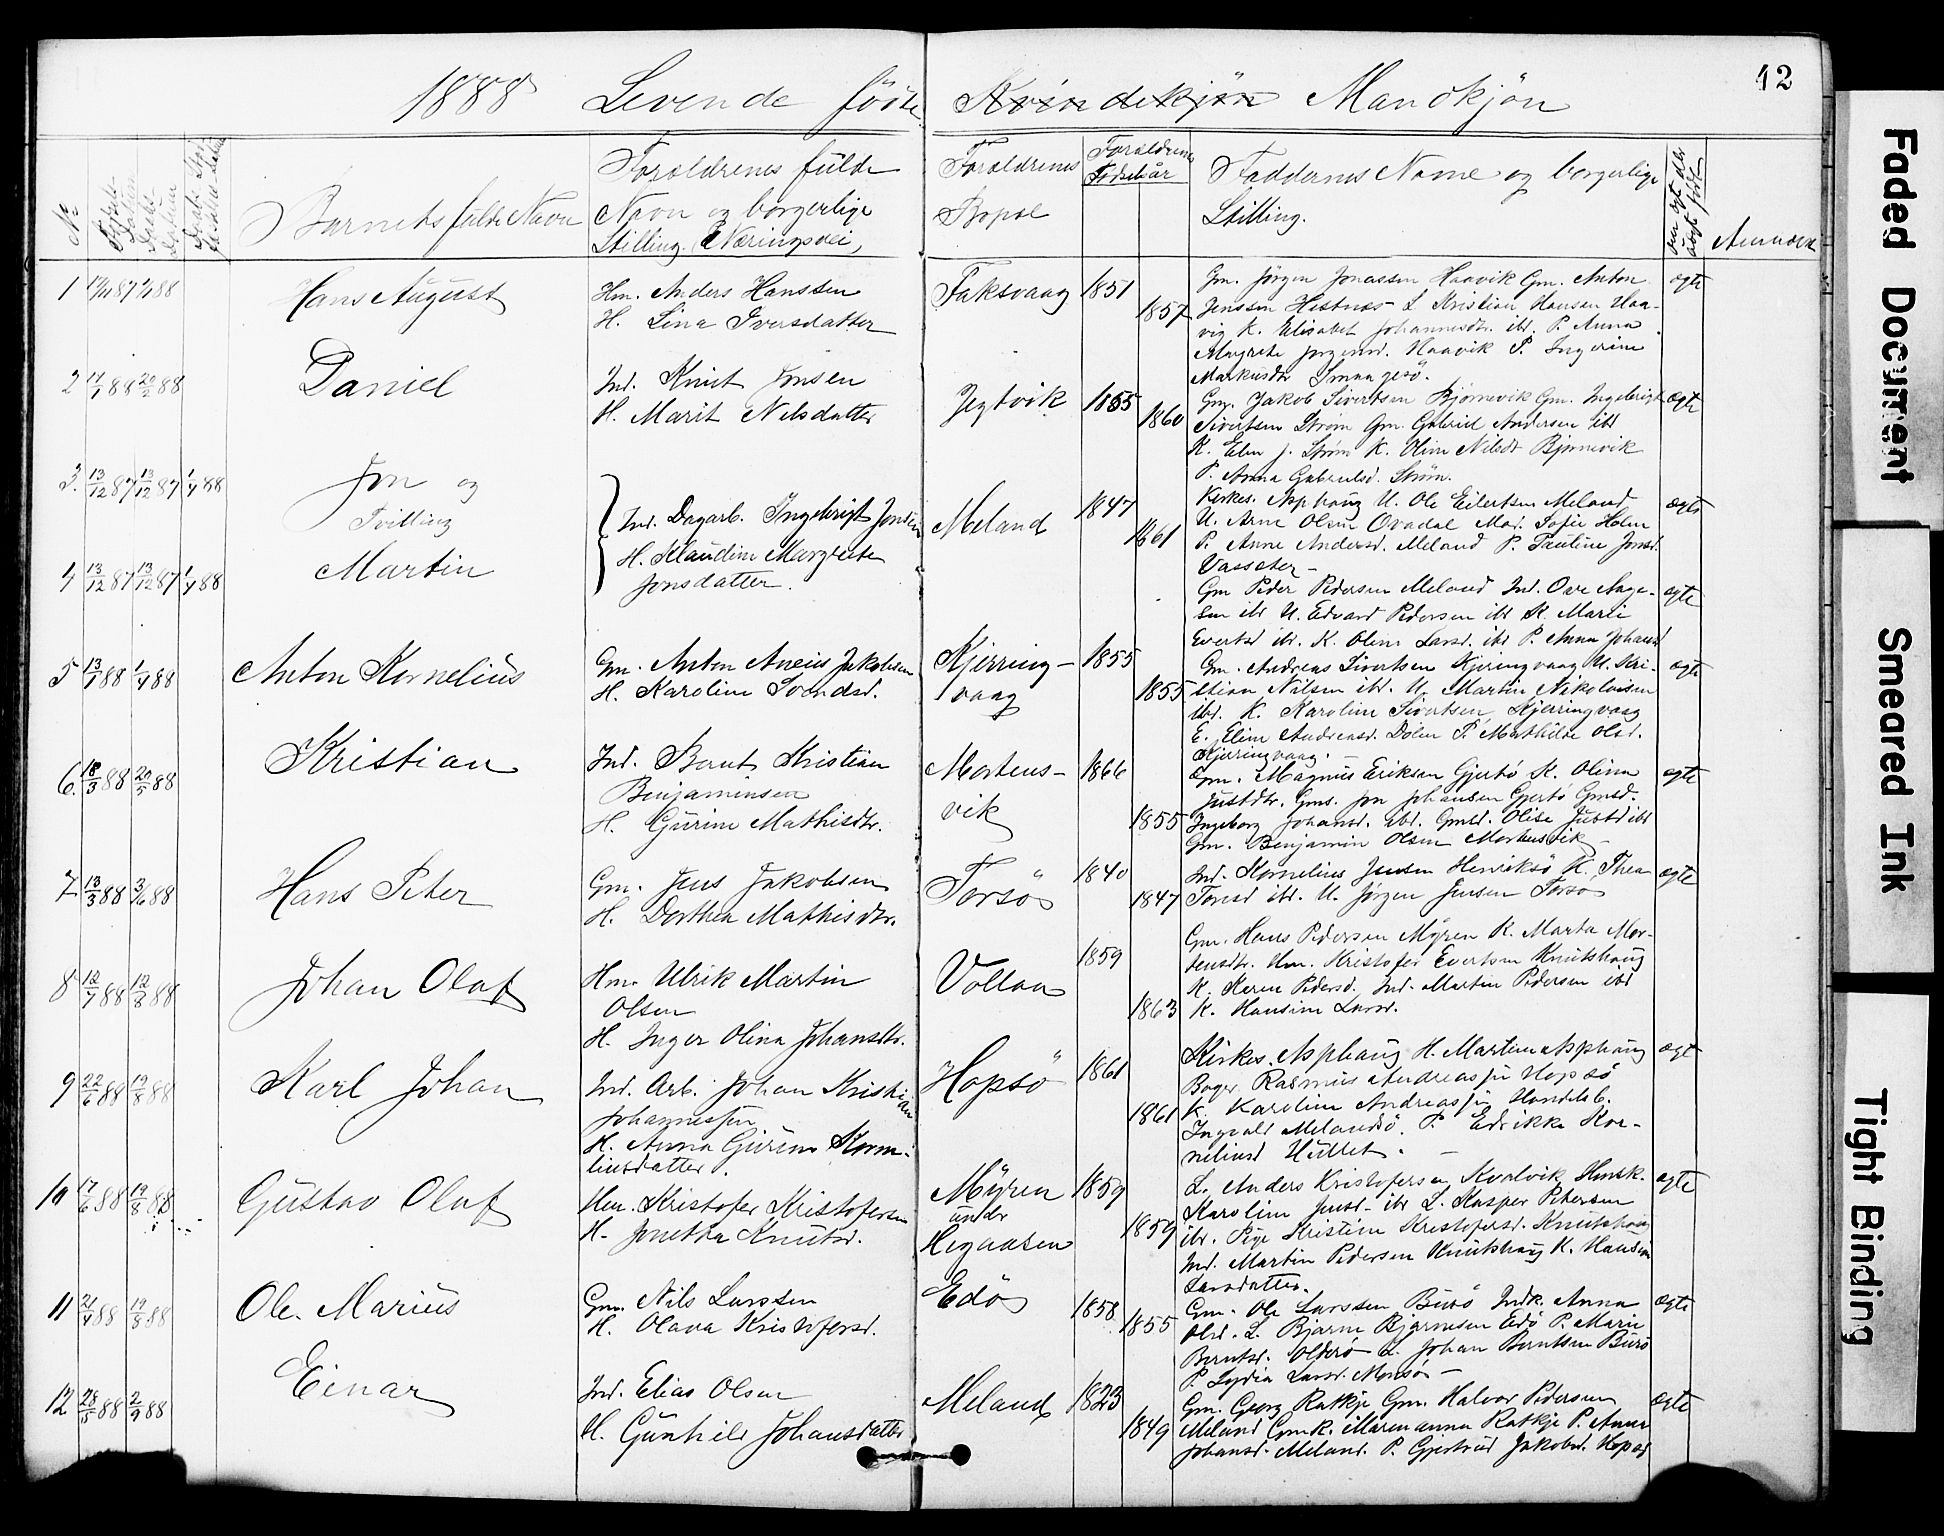 12
1888 Levende födte Kvindekjön Mandkjön
No
Barnets fulde Navn
Forældrenes fulde
Navn og borgerlige
Stilling (Næringsvei)
Forældrenes
Bopæl
Forældrenes
Födselsår
Faddernes Navne og borgerlige
Stilling.
1 87 88 Hans August
Hm. Anders Hanssen
H. Lina Iversdatter
Faksvaag 1851
1857
Gm. Jörgen Jonassen Haavik Gm. Anton
Jenssen Hestnes L. Kristian Hansen Haa-
vig K. Elisabet Johannesdtr. ibd. P. Anna
Margrete Jörgensd. Haavik P. Ingerine
Markusdtr Smaagesö.
ægte
2 17/1 88 20/2 88 Daniel
Ind. Knut Jonsen
H. Marit Nelsdatter
Jegtvik 1855
1860
Gm. Jakob Sivertsen Bjørnevik Gm. Ingebrigt
Sivertsen Strøm Gm. Gabriel Andersen ibd
K. Elen J. Strøm K. Oline Nilsdt Bjørnevik
P. Anna Gabrielsd. Strøm.
ægte
3. 13/12 87 13/12 87 1/4 88 Jon og
Tvilling
4 13/12 87 13/12 87 1/4 88 Martin
Ind. Dagarb. Ingebrigt Jonsen
H. Klaudine Margrete
Jonsdatter.
Meland 1847
1861
Kirkes. Asphaug U. Ole Eilertsen Meland
U. Arne Olsen Ovadal Mad. Sofie Holm
P. Anne Andersd. Meland P. Pauline Jonsd.
Vasseter -
ægte
Gm Peder Pedersen Meland Ind. Ove Aage-
sen ibd U. Edvard Pedersen ibd K. Marie
Evertsd ibd. K. Oline Larsd. ibd P. Anna Johansd
ægte
5 13/1 88 1/4 88 Anton Kornelius
Gm. Anton Aneus Jakobsen
H. Karoline Svendsd.
Kjerring-
vaag
1855
1855
Gm. Andreas Sivertsen Kjerringvaag U. Kri-
stian Nilsen ibd. U. Martin Nikolaisen
ibd. K. Karoline Sivertsen, Kjerringvaag
E. Eline Andreasd. Dolm P. Mathilde Olsd.
Kjerringvaag. -
ægte
6. 18/3 88 20/5 88 Kristian
Ind. Bernt Kristian
Benjaminsen
H. Gurine Mathisdtr.
Mortens-
vik
1866
1855
Gm. Magnus Eriksen Gjertö K. Olina
Justdtr. Gms. Jon Johansen Gjertö Gmsd.
Ingeborg Johansd. ibd. Gmsd. Olise Justd ibd
Gm. Benjamin Olsen Mortensvik
ægte
7 13/3 88 3/6 88 Hans Peter
Gm. Jens Jakobsen
H. Dorthea Mathisdtr.
Torsö 1840
1847
Ind. Kornelius Jensen Henriksö K. Thea
Toresd ibd. U. Jørgen Jensen Torsö
ægte
8 12/7 88 12/8 88 Johan Olaf
Hm. Ulrik Martin
Olsen
H. Inger Olina Johansdtr.
Vollan 1859
1863
Gm. Hans Pedersen Myren K. Marta Mor-
tensdtr. Hm. Kristofer Evertsen Knutshaug
K. Karen Pedersd. Ind. Martin Pedersen ibd
K. Hansine Larsd.
9 22/6 88 19/8 88 Karl Johan
Ind. Arb. Johan Kristian
Johannessen
H. Anna Gurine Korne-
liusdatter.
Hopsö 1861
1861
Kirkes. Asphaug H. Martine Asphaug
Boger Rasmus Andreassen Hopsö
K. Karoline Andreassen Handelsb.
Ingvald Melandsö. P. Edrikke Kor-
neliusd Hullet. -
ægte
10 17/6 88 19/8 88 Gustav Olaf
Hm. Kristofer Kristofersen
H. Jonetta Knutsd.
Myren
under
Hegaasen
1859
1859
L. Anders Kristofersen Kvalvik Hmsk.
Karoline Jensd. ibd L. Kasper Petersen
ibd. Pige Kristine Kristofersd. Knutshaug
Ind. Martin Pedersen Knutshaug K. Hansine
Larsdatter.
ægte
11 21/4 88 19/8 88 Ole Marius
Gm. Nils Larssen
H. Olava Kristofersd.
Edö 1858
1855
Gm. Ole Larssen Burö Indk. Anna
Olsd. L. Bjarne Bjarnesen Edö P. Marie
Berntsd. Olderö L. Johan Berntsen Burö
P. Lydia Larsd. Monsö -
ægte
12 28/5 88 2/9 88 Einar
Ind. Elias Olsen
H. Gunhild Johansdatter
Meland 1823
1849
Gm. Georg Ratkje Gm. Halvor Pedersen
Meland Gmk. Marenanna Ratkje P. Anna
Johansd. Meland. P. Gjertrud Jakobsd. Hopsö
ægte
Faded Document
Smeared Ink
Tight Binding